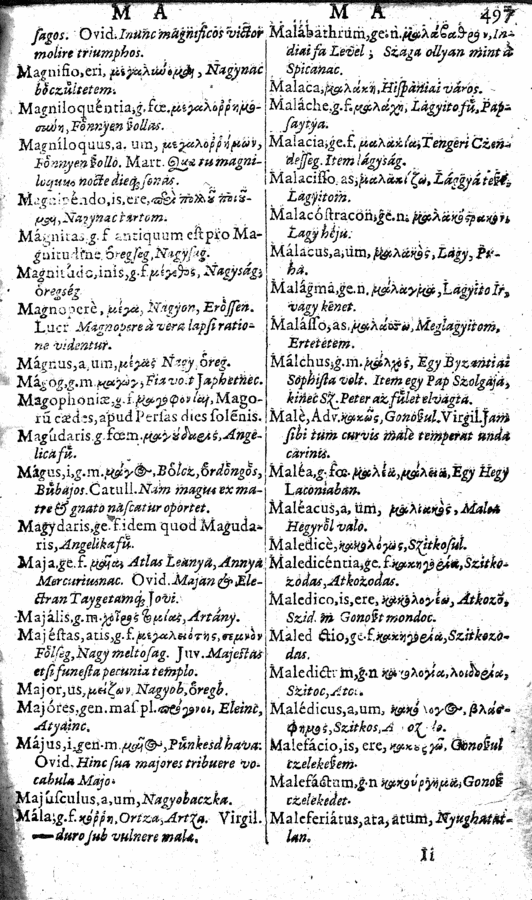 M A
ſagos. Ovid. Inunc magnificos victor
molire triumphos.
Magnifio, eri, Nagynac
bôczúltetem.
Magniloquêntia, g. fœ. μεγαλοῤῥημο-
σωύη, Fônnyen ſzollas.
Magníloquus, a. um, μεγαλοῤῥήμων,
Fônnyen ſzollo. Mart. Quæ tu magni-
loquus nocte dieq; ſonas.
is, ere,
Nagynac tartom.
Mágnitas, g. f. antiquum eſt pro Ma-
gnitudine, ôregſeg, Nagyſag.
Magnitúdo, inis, g. f. μέγεθος, Nagyság,
ôregség.
Magnoperè, μέγα, Nagyon, Erôſſen.
Lucr Magnopere à vera lapſi ratio-
ne videntur.
Mágnus, a, um, μέγας Nagy, ôreg.
Mágog, g. m. μαγὼγ, Fia vo.t Japhetnec.
Magophoniæ, g. f. μαγοφονίαι, Mago-
rū cædes, apud Perſas dies ſolénis.
Magúdaris, g. fœm. μαγύδαρις, Ange-
lica fû.
Mágus, i, g. m. μάγος, Bôlcz, ôrdôngôs,
Bûbájos. Catull. Nam magus ex ma-
tre & gnato naſcatur oportet.
Magýdaris, ge. f. idem quod Maguda-
ris, Angelika fû.
Maja, ge. f. μαῖα, Atlas Leánya, Annya
Mercuriusnac. Ovid. Majan & Ele-
ctran Taygetamq́; Jovi.
Majális, g. m. χοῖρος τομίας, Artány.
Majéſtas, atis, g. f. μεγαλειότης, σεμνὸν
Fôlſég, Nagy meltoſag. Juv. Majeſtas
etſi funeſta pecunia templo.
Major, us, μείζων, Nagyob, ôregb.
Majóres, gen. maſ pl. πρόγονοι, Eleinc,
Atyáinc.
Május, i, gen. m. μαῖος, Pûnkesd hava.
Ovid. Hinc ſua majores tribuere vo-
cabula Majo.
Majúſculus, a, um, Nagyobaczka.
Mála, g. f. κόῤῥη, Ortza, Artza. Virgil.
—duro ſub vulnere mala.
M A 497
Malábathrum, ge. n. μαλάβαθρον, In-
diai fa Level; Szaga ollyan mint à
Spicanac.
Malaca, μαλάκη, Hiſpaniai város.
Maláche, g. f. μαλάχη, Lágyito fû, Pap-
ſaytya.
Malacia, ge. f. μαλακία, Tengeri Czen-
deſſeg. Item lágyság.
Malaciſſo, as, μαλακίζω, Lággyá teſzē,
Lágyitom.
Malacóſtracon, ge. n. μαλακόςρακον,
Lagy héju.
Málacus, a, um, μαλακὸς, Lágy, Pu-
ha.
Malágma, ge. n, μάλαγμα, Lágyito Ir,
vagy kenet.
Maláſſo, as, μαλάσσω, Meglagyitom,
Ertetetem.
Málchus, g. m. μάλχος, Egy Byzantiai
Sophiſta volt. Item egy Pap Szolgája,
kinec Sz. Peter az fûlet elvágta.
Malè, Adv. κακῶς, Gonoſzul. Virgil. Jam
ſibi tum curvis malè temperat unda
carinis.
Maléa, g. fœ. μαλέα, μάλεια, Egy Hegy
Laconiaban.
Maléacus, a, um, μαλιακὸς, Malea
Hegyrôl valo.
Maledicè, κακολόγως, Szitkoſul.
Maledicéntia, ge. f. κακηγορία, Szitko-
zodas, Atkozodas.
Maledico, is, ere, κακολογέω, Atkozô,
Szid. m Gonoſzt mondoc.
Maled ctio, ge. f. κακηγορία, Szitkozò-
das.
Maledict m, g n κακολογία, λοιδορία,
Szitoc,
Malédicus, a, um, βλάσ-
φημος, Szitkos,
Malefácio, is, ere, Gonoſzul
tzelekeſzem.
Malefáctum, g. n κακούργημα, Gonoſz
tzelekedet.
Maleferiátus, ata, atum, Nyughatat-
lan.
Ii